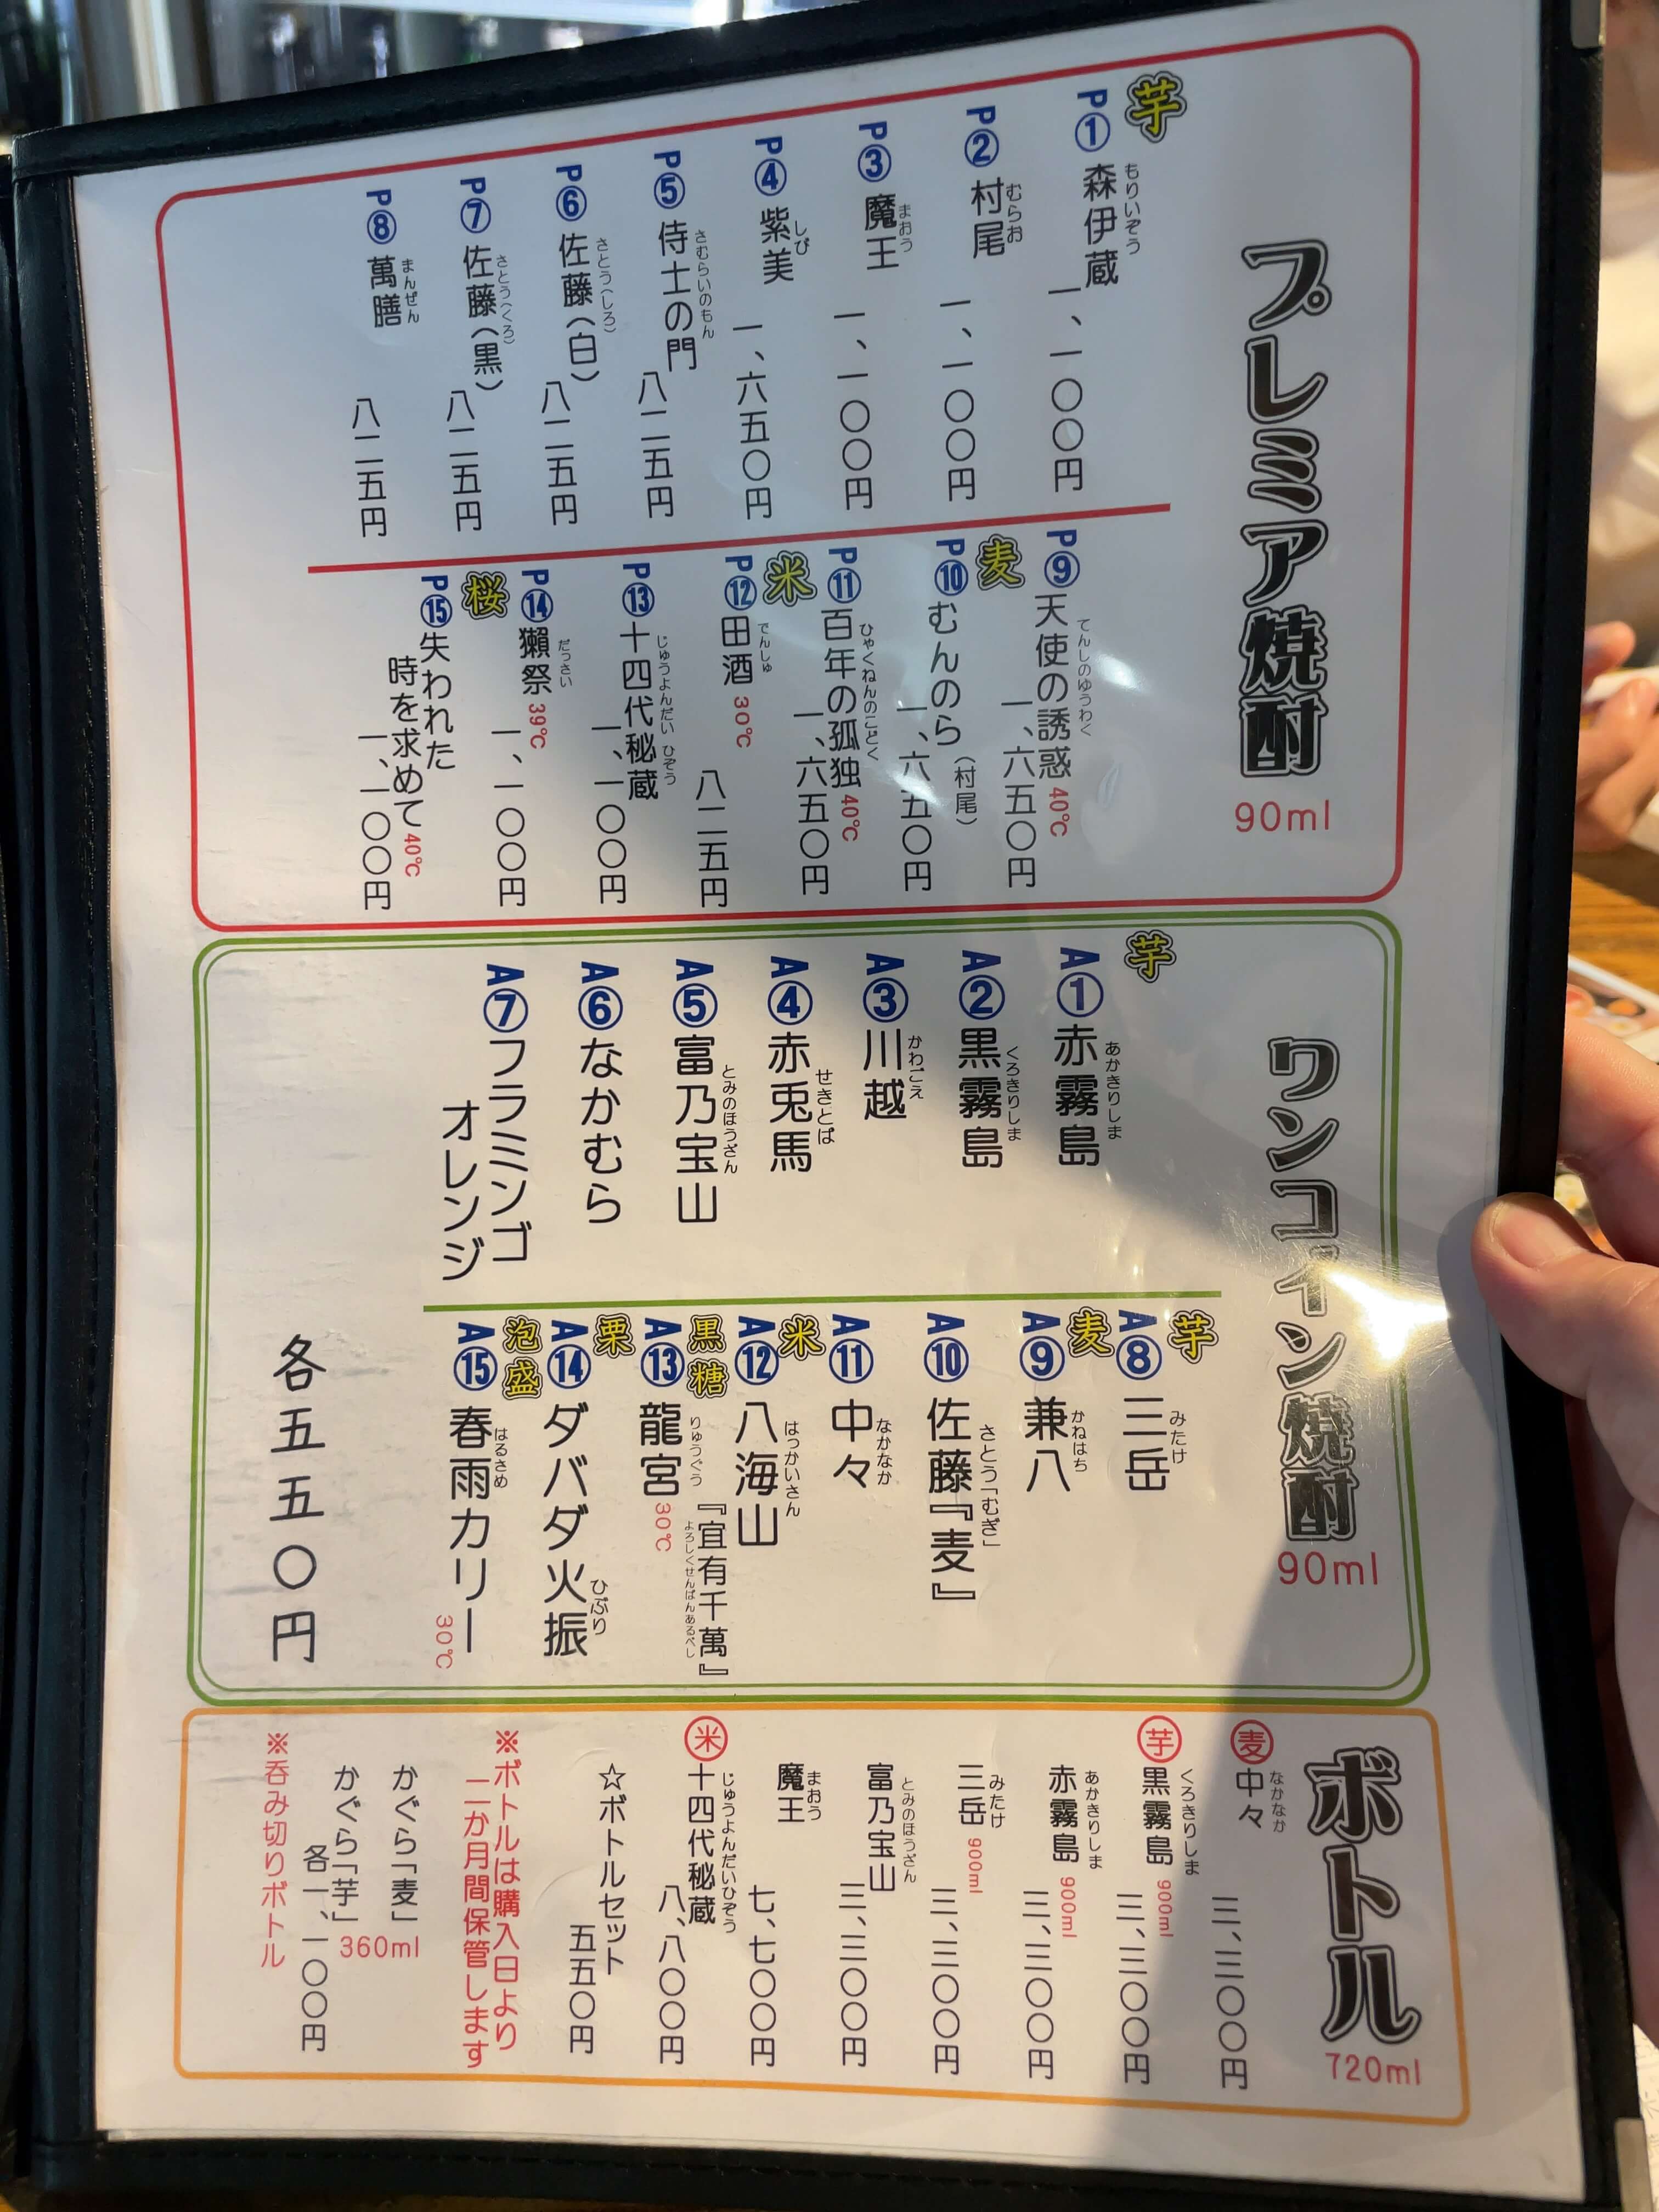 プレミア焼酎 90ml
芋
P① 森伊蔵 もりいぞう 一、一〇〇円
P② 村尾 むらお 一、一〇〇円
P③ 魔王 まおう 一、一〇〇円
P④ 紫美 しび 一、六五〇円
P⑤ 侍士の門 さむらいのもん 八二五円
P⑥ 佐藤(白) さとう(しろ) 八二五円
P⑦ 佐藤(黒) さとう(くろ) 八二五円
P⑧ 萬膳 まんぜん 八二五円
P⑨ 天使の誘惑 てんしのゆうわく 40℃ 一、六五〇円
麦
P⑩ むんのら(村尾) 一、六五〇円
P⑪ 百年の孤独 ひゃくねんのこどく 40℃ 一、六五〇円
米
P⑫ 田酒 でんしゅ 30℃ 八二五円
P⑬ 十四代秘蔵 じゅうよんだい ひぞう 一、一〇〇円
P⑭ 獺祭 だっさい 39℃ 一、一〇〇円
桜
P⑮ 失われた
時を求めて 40℃ 一、一〇〇円
ワンコイン焼酎 90ml
芋
A① 赤霧島 あかきりしま
A② 黒霧島 くろきりしま
A③ 川越 かわごえ
A④ 赤兎馬 せきとば
A⑤ 富乃宝山 とみのほうざん
A⑥ なかむら
A⑦ フラミンゴ
オレンジ
芋
A⑧ 三岳 みたけ
麦
A⑨ 兼八 かねはち
A⑩ 佐藤『麦』 さとう「むぎ」
A⑪ 中々 なかなか
米
A⑫ 八海山 はっかいさん
『宜有千萬』 よろしくせんばんあるべし
黒糖
A⑬ 龍宮 りゅうぐう 30℃
栗
A⑭ ダバダ火振 ひぶり
泡盛
A⑮ 春雨カリー はるさめ 30℃
各五五〇円
ボトル 720ml
麦 中々 なかなか 三、三〇〇円
芋 黒霧島 くろきりしま 900ml 三、三〇〇円
赤霧島 あかきりしま 900ml 三、三〇〇円
三岳 みたけ 900ml 三、三〇〇円
富乃宝山 とみのほうざん 三、三〇〇円
魔王 まおう 七、七〇〇円
米 十四代秘蔵 じゅうよんだいひぞう 八、八〇〇円
☆ボトルセット 五五〇円
※ボトルは購入日より
二か月間保管します
かぐら「麦」
かぐら「芋」 360ml
各一、一〇〇円
※呑み切りボトル